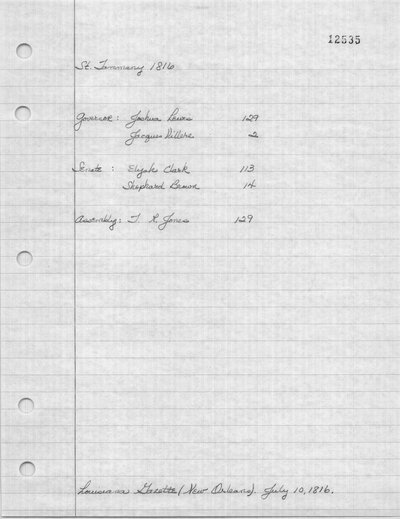 12535
St. Tammany 1816
Governor: Joshua Lewis 129
Jacques Villere 2
Senate : Elijah Clark 113
Shephard Brown 14
Assembly: T. R. Jones 129
Louisiana Gazette (New Orleans). July 10, 1816.